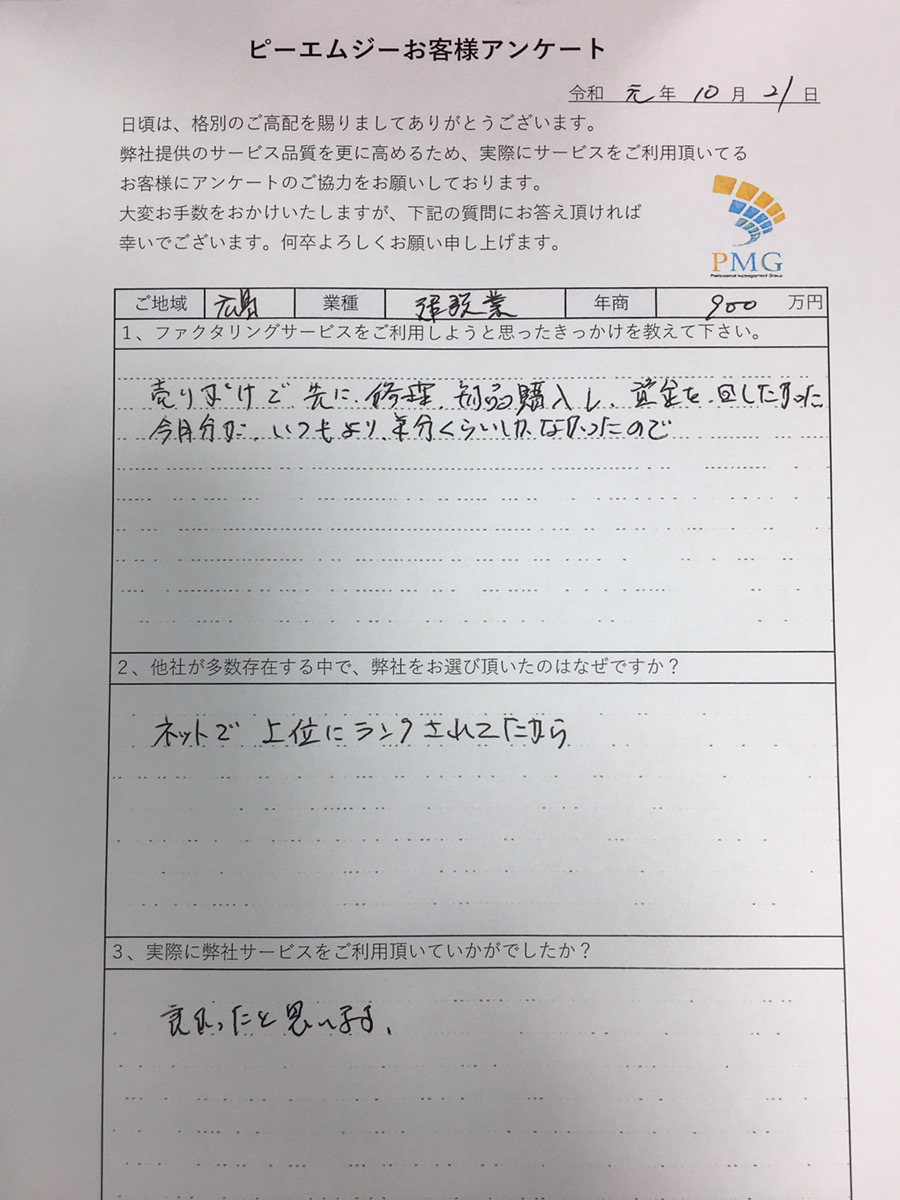 ピーエムジーお客様アンケート
令和 元 年 10 月 21 日
日頃は、格別のご高配を賜りましてありがとうございます。
弊社提供のサービス品質を更に高めるため、実際にサービスをご利用頂いてる
お客様にアンケートのご協力をお願いしております。
大変お手数をおかけいたしますが、下記の質問にお答え頂ければ
幸いでございます。何卒よろしくお願い申し上げます。
PMG
Professional Management Group
ご地域 広島 業種 建設業 年商 900 万円
1、ファクタリングサービスをご利用しようと思ったきっかけを教えて下さい。
売り掛けで、先に、修理、部品購入し、資金を、回したかった
今月分が、いつもより、半分くらいしか、なかったので
2、他社が多数存在する中で、弊社をお選び頂いたのはなぜですか？
ネットで 上位にランクされてたから
3、実際に弊社サービスをご利用頂いていかがでしたか？
良かったと思います、